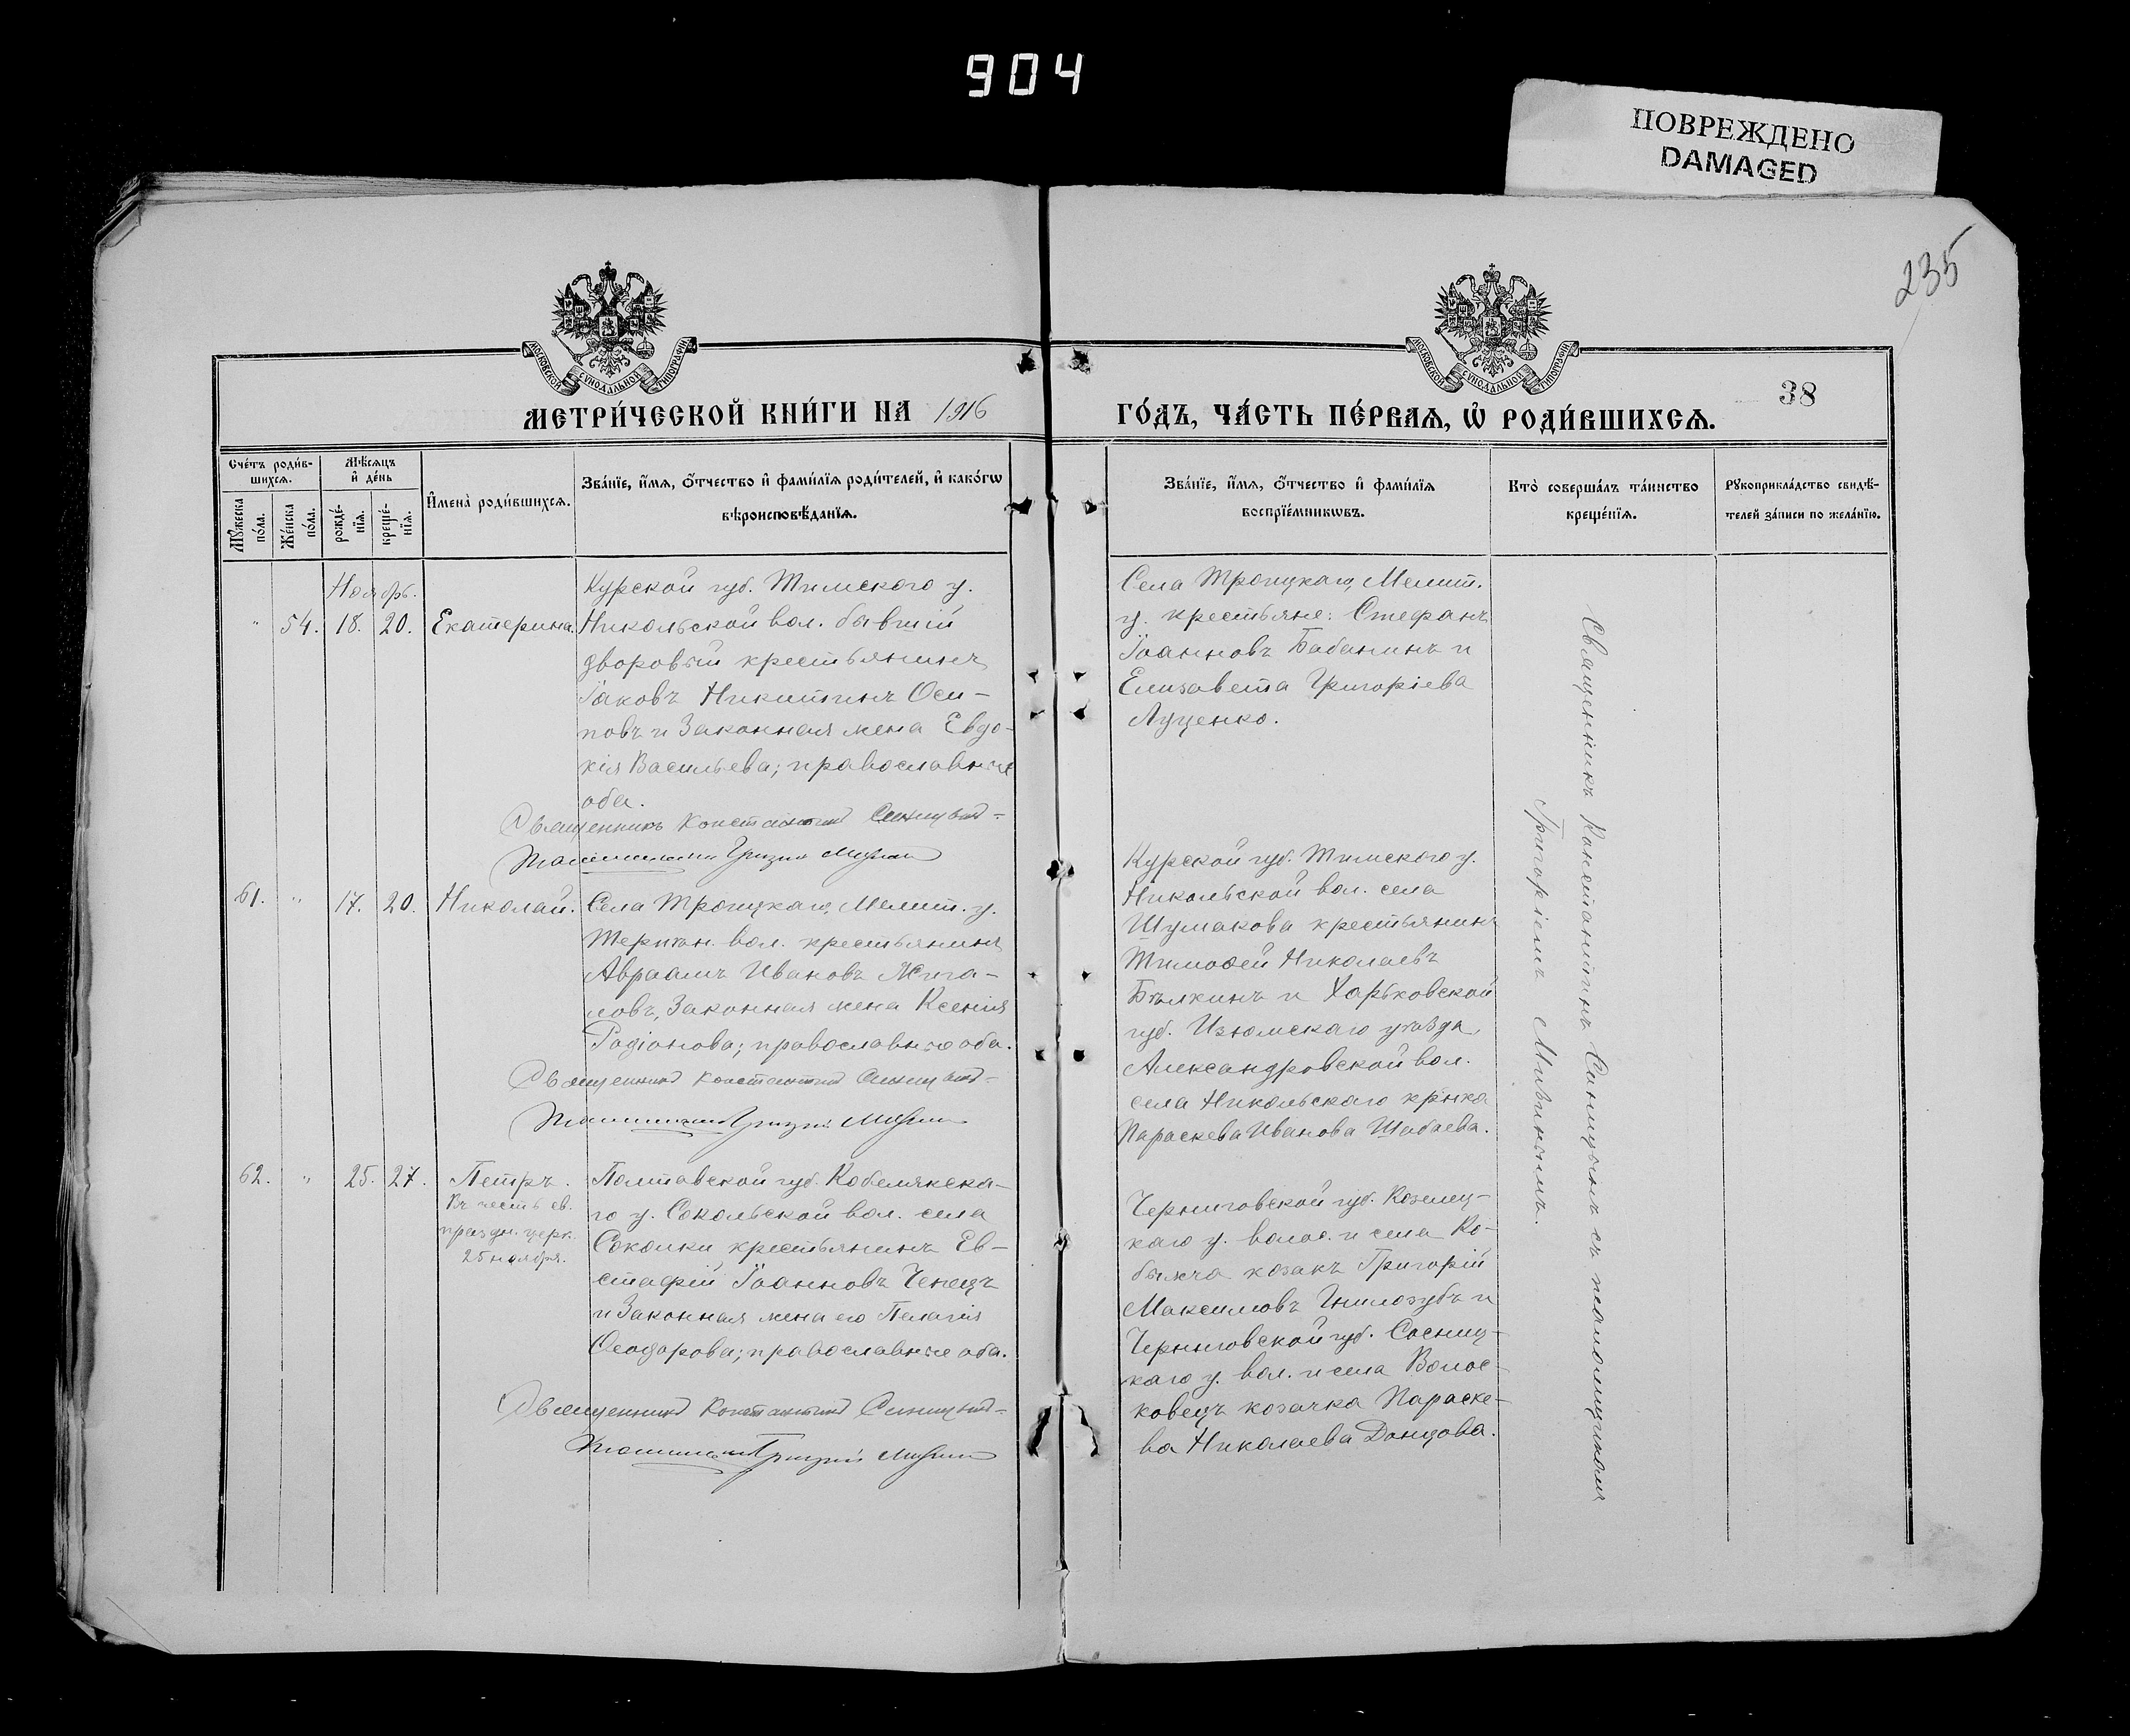 904
ПОВРЕЖДЕНО
DAMAGED
235
38
МОСКОВСКОЙ СѴНОДАЛЬНОЙ ТИПОГРАФІИ
МОСКОВСКОЙ СѴНОДАЛЬНОЙ ТИПОГРАФІИ
МЕТРИ́ЧЕСКОЙ КНИ́ГИ НА 1916
ГО́ДЪ, ЧА́СТЬ ПЕ́РВАѦ, Ѡ҆ РОДИ́ВШИХСѦ.
Сче́тъ роди́в-
шихсѧ.
Мꙋ́жеска
по́ла.
Же́нска
по́ла.
Мѣ́сѧцъ
и҆ де́нь
рожде́-
нїѧ.
креще́-
нїѧ.
И҆мена̀ роди́вшихсѧ.
Зва́нїе, и҆́мѧ, ѻ҆́тчество и҆ фами́лїѧ роди́телей, и҆ како́гѡ
вѣроисповѣ́данїѧ.
Зва́нїе, и҆́мѧ, ѻ҆́тчество и҆ фами́лїѧ
воспрїе́мникѡвъ.
Кто̀ соверша́лъ та́инство
креще́нїѧ.
Рꙋкоприкла́дство свидѣ́-
телей за́писи по жела́нїю.
Ноябрь.
" 54. 18. 20. Екатерина.
Курской губ. Тимского у.
Никольской вол. бывшій
дворовый крестьянинъ
Іаковъ Никитинъ Оси-
повъ и Законная жена Евдо-
кія Васильева; православные
оба.
Священникъ Константинъ Синицынъ
Григорій
Села Троицкаго, Мелит.
у. крестьяне: Стефанъ
Іоанновъ Бабанинъ и
Елизавета Григоріева
Луценко.
61. " 17. 20. Николай.
Села Троицкаго, Мелит. у.
вол. крестьянинъ
Авраамъ Ивановъ Жига-
ловъ, Законная жена Ксенія
Родіонова; православные оба.
Священникъ Константинъ Синицынъ
Григорій
Курской губ. Тимского у.
Никольской вол. села
Шумакова крестьянинъ
Тимоѳей Николаевъ
Бѣлкинъ и Харьковской
губ. Изюмскаго уѣзда,
Александровской вол.
села Никольскаго крѣнка
Параскева Иванова Шабаева.
62. " 25. 27. Петръ.
Въ честь св.
праздн. церк.
25 ноября.
Полтавской губ. Кобелякска-
го у. Сокольской вол. села
Соколки крестьянинъ Ев-
стафій Іоанновъ Ченецъ
и Законная жена его Пелагія
Ѳеодорова; православные оба.
Священникъ Константинъ Синицынъ
Григорій
Черниговской губ. Козелец-
каго у. волос. и села Ко-
быжча козакъ Григорій
Максимовъ Гнилозубъ и
Черниговской губ. Сосниц-
каго у. вол. и села Волос-
ковецъ козачка Параске-
ва Николаева Донцова.
Священникъ Константинъ Синицынъ съ псаломщикомъ
Григоріемъ